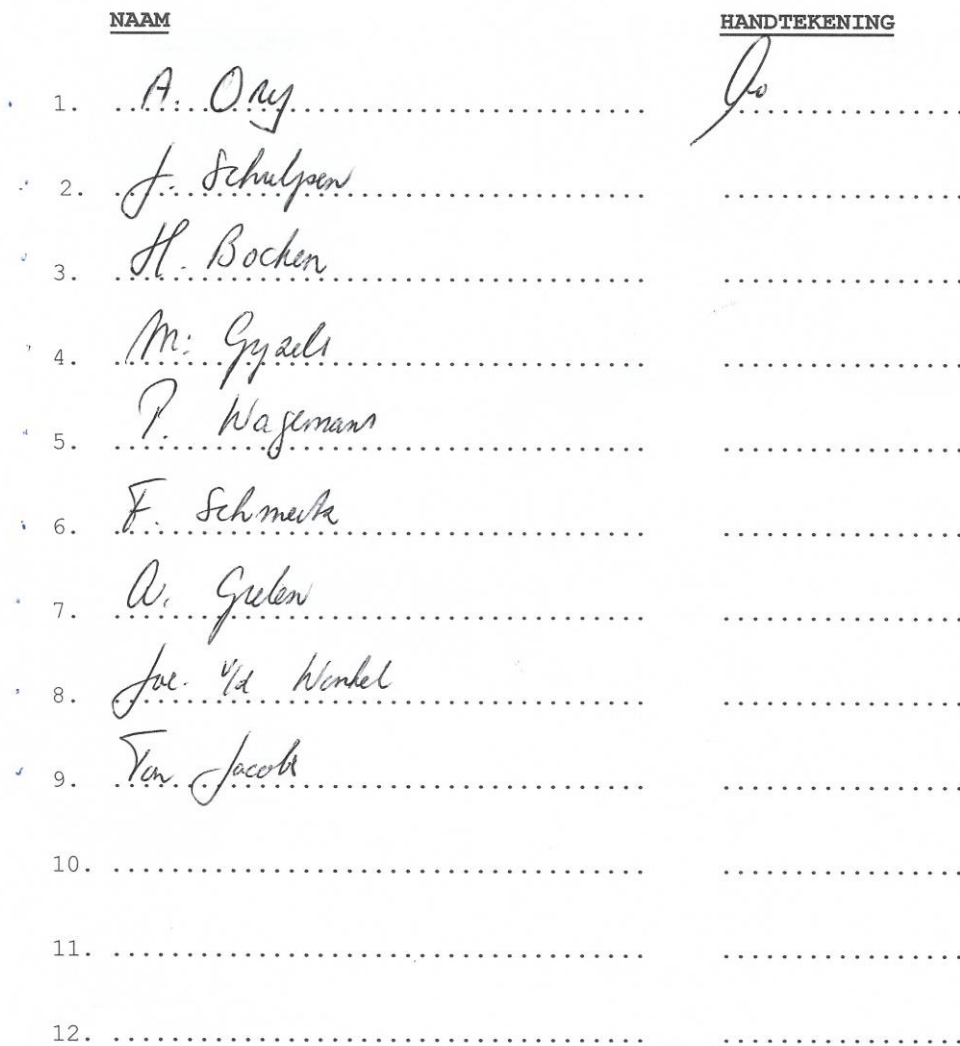 NAAM HANDTEKENING
1. A. Ory
2. J. Schulpen
3. H. Bochen
4. M. Gyzels
5. P. Wagemans
6. F.
7. A. Grelen
8. Joe. v/d Winkel
9. Ton Jacobs
10.
11.
12.